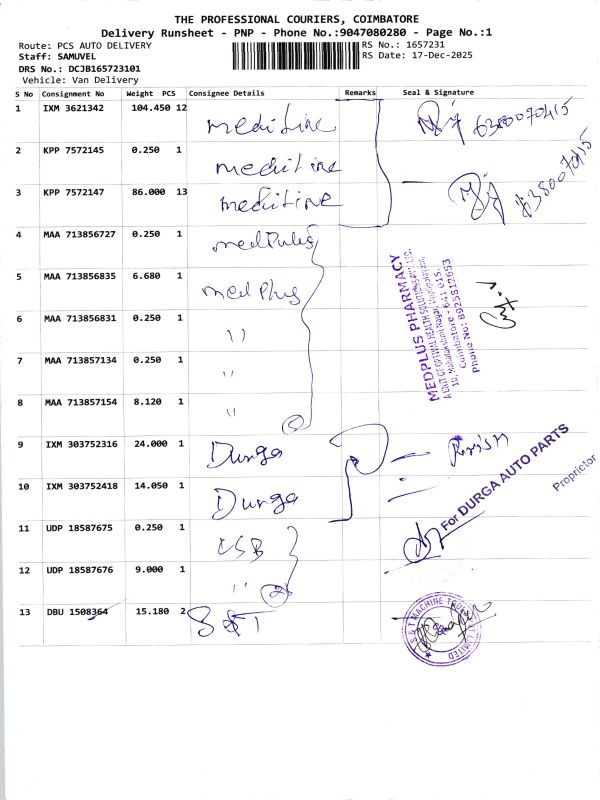 THE PROFESSIONAL COURIERS, COIMBATORE
Delivery Runsheet - PNP - Phone No.:9047080280 - Page No.:1
Route: PCS AUTO DELIVERY
RS No.: 1657231
Staff: SAMUVEL
RS Date: 17-Dec-2025
DRS No.: DCJB165723101
Vehicle: Van Delivery
S No Consignment No Weight PCS Consignee Details Remarks Seal & Signature
1 IXM 3621342 104.450 12 meditine 6380070415
2 KPP 7572145 0.250 1 meditine
3 KPP 7572147 86.000 13 meditine 6380070415
4 MAA 713856727 0.250 1
5 MAA 713856835 6.680 1 medplus
6 MAA 713856831 0.250 1 "
7 MAA 713857134 0.250 1 "
8 MAA 713857154 8.120 1 "
MEDPLUS PHARMACY
Coimbatore - 641 015.
Phone No: 8925812653
9 IXM 303752316 24.000 1 Durga
10 IXM 303752418 14.050 1 Durga
For DURGA AUTO PARTS
Proprietor
11 UDP 18587675 0.250 1 USB
12 UDP 18587676 9.000 1 "
13 DBU 1508364 15.180 2 S&T
S & T MACHINE LIMITED